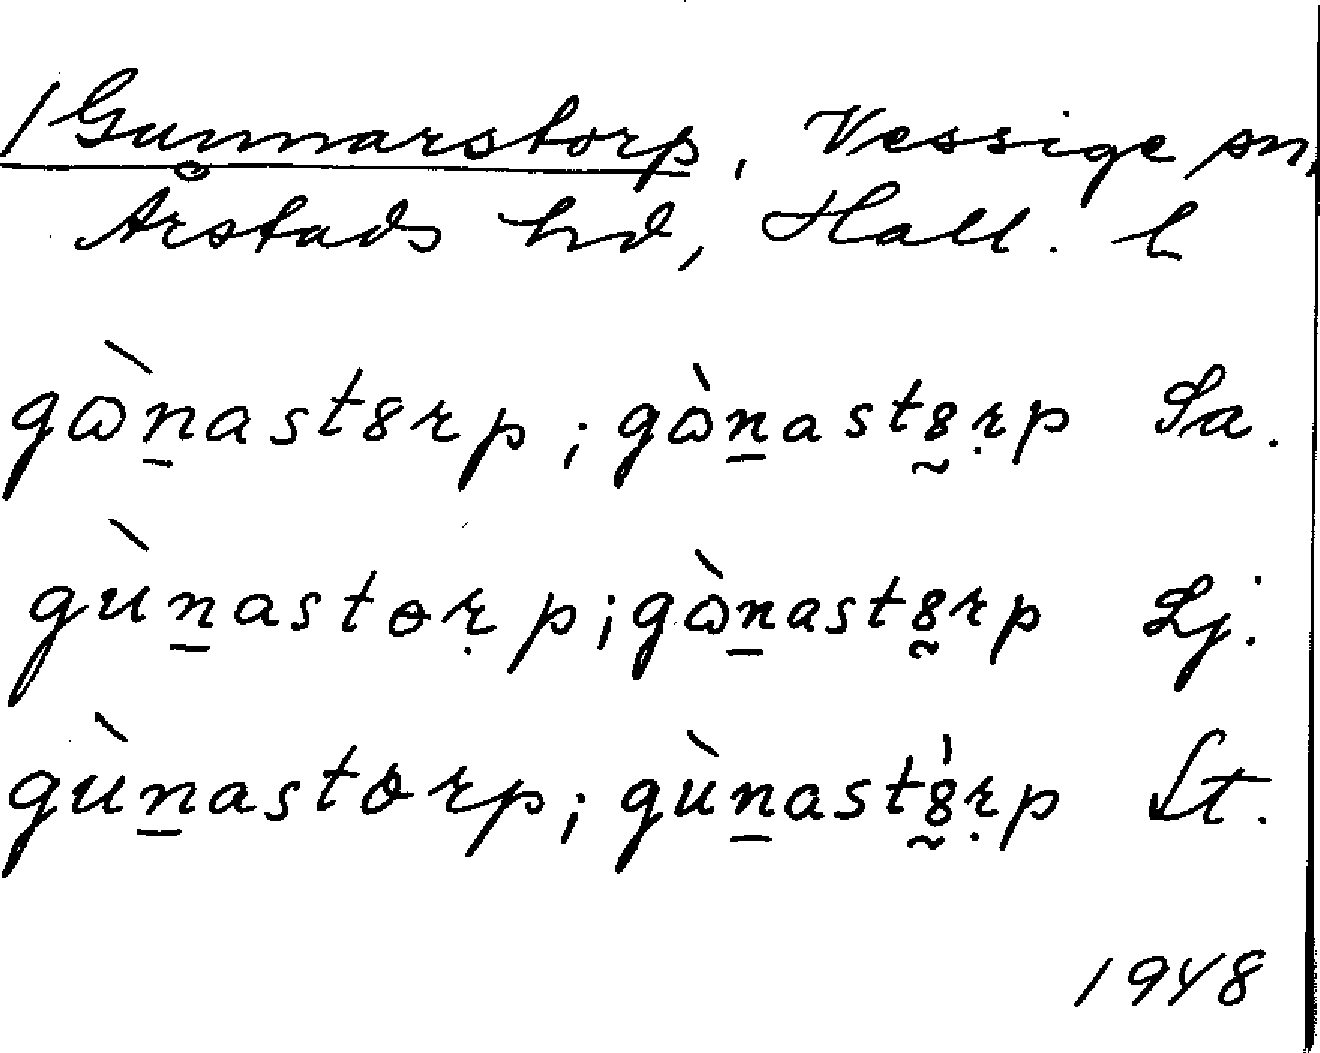 /Gunnarstorp, Vessige sn,
Årstads hd, Hall. l
gὼn̲ast8rp; gὼn̲ast8̰ṛp Sa.
gùn̲astɵṛp; gὼn̲ast8̰rp Lj.
gùn̲astɵrp; gùn̲ast8̰̍ṛp Lt.
1948